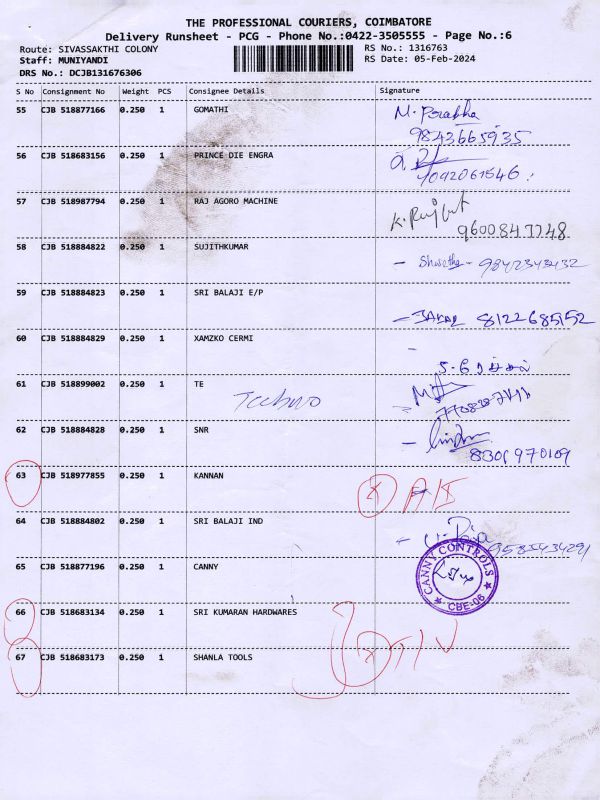 THE PROFESSIONAL COURIERS, COIMBATORE
Delivery Runsheet - PCG - Phone No.:0422-3505555 - Page No.:6
Route: SIVASSAKTHI COLONY RS No.: 1316763
Staff: MUNIYANDI RS Date: 05-Feb-2024
DRS No.: DCJB131676306
S No Consignment No Weight PCS Consignee Details Signature
55 CJB 518877166 0.250 1 GOMATHI M. Porabha
9843665935
56 CJB 518683156 0.250 1 PRINCE DIE ENGRA
9092061546
57 CJB 518987794 0.250 1 RAJ AGORO MACHINE K. Ranjit
9600847748
58 CJB 518884822 0.250 1 SUJITHKUMAR - Shwetha - 9842343432
59 CJB 518884823 0.250 1 SRI BALAJI E/P 8122685152
60 CJB 518884829 0.250 1 XAMZKO CERMI -
61 CJB 518899002 0.250 1 TE Techno
62 CJB 518884828 0.250 1 SNR -
8301970109
63 CJB 518977855 0.250 1 KANNAN
64 CJB 518884802 0.250 1 SRI BALAJI IND - U. Raja
9585434291
65 CJB 518877196 0.250 1 CANNY CANNY CONTROLS
★ CBE-06 ★
66 CJB 518683134 0.250 1 SRI KUMARAN HARDWARES
67 CJB 518683173 0.250 1 SHANLA TOOLS